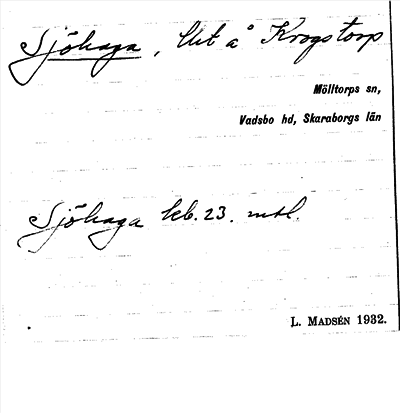 Sjöhaga, lht å Krogstorp
Mölltorps sn,
Vadsbo hd, Skaraborgs län
Sjöhaga kb. 23. mtl.
L. MADSÉN 1932.